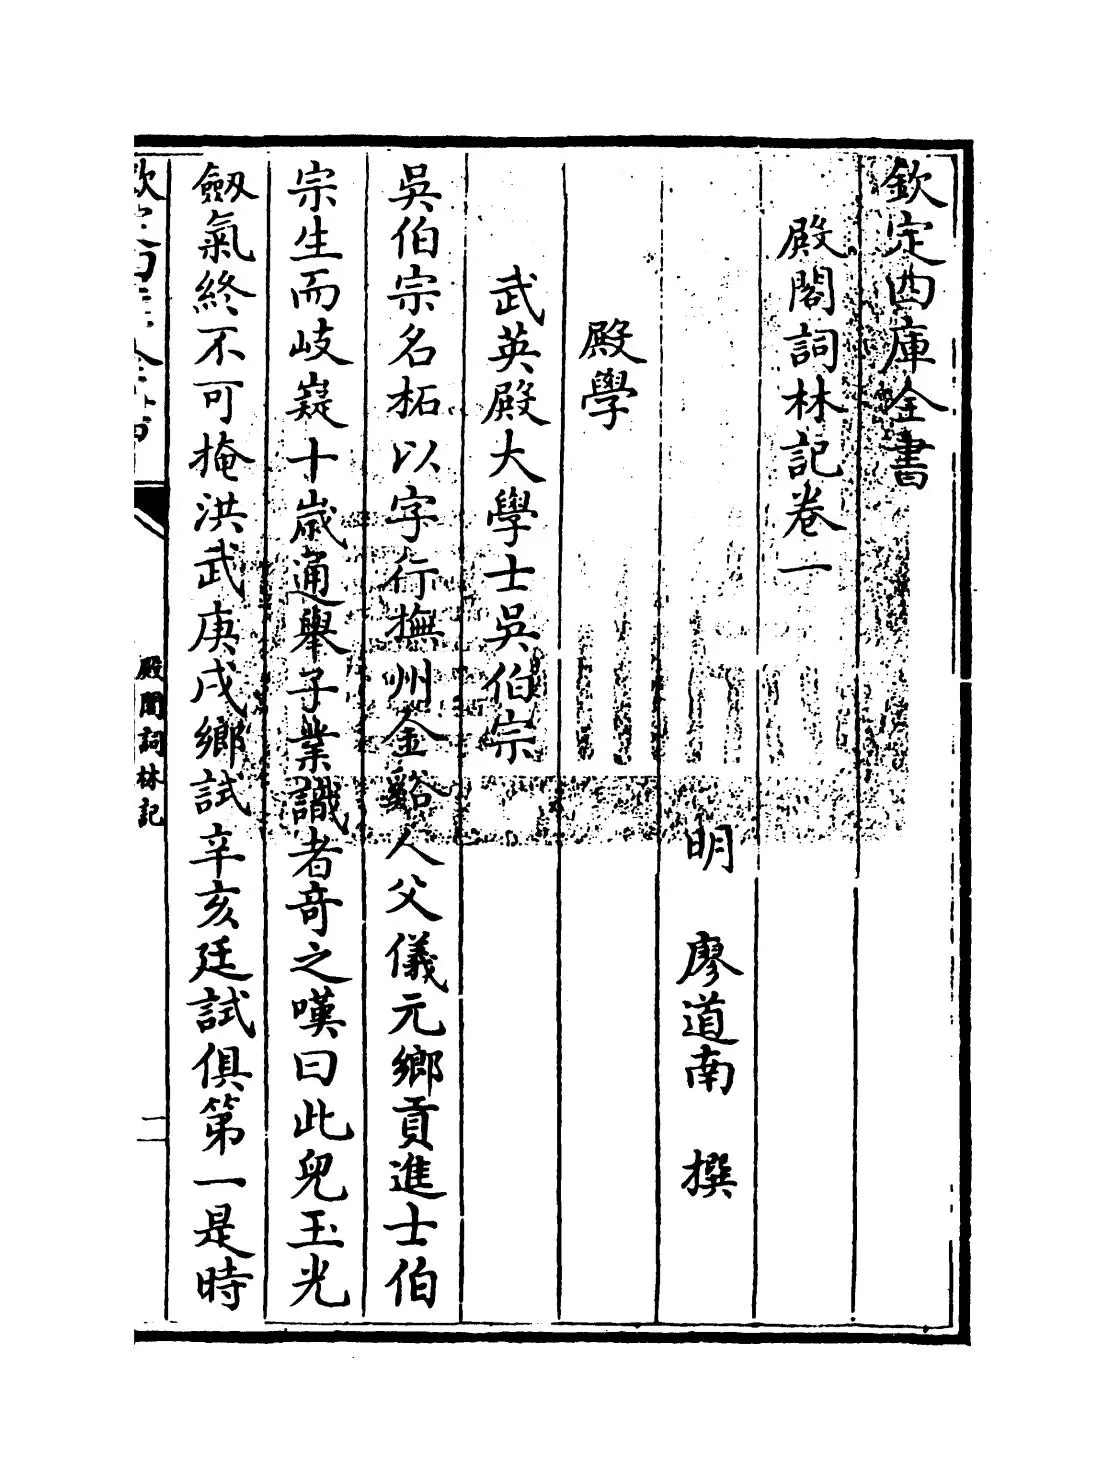 欽定四庫全書
殿閣詞林記卷一
明 廖道南 撰
殿學
武英殿大學士吳伯宗
吳伯宗名柘以字行撫州金谿人父儀元鄉貢進士伯
宗生而岐嶷十歲通舉子業識者竒之嘆曰此兒玉光
劔氣終不可掩洪武庚戌鄉試辛亥廷試俱第一是時
殿閣詞林記
二